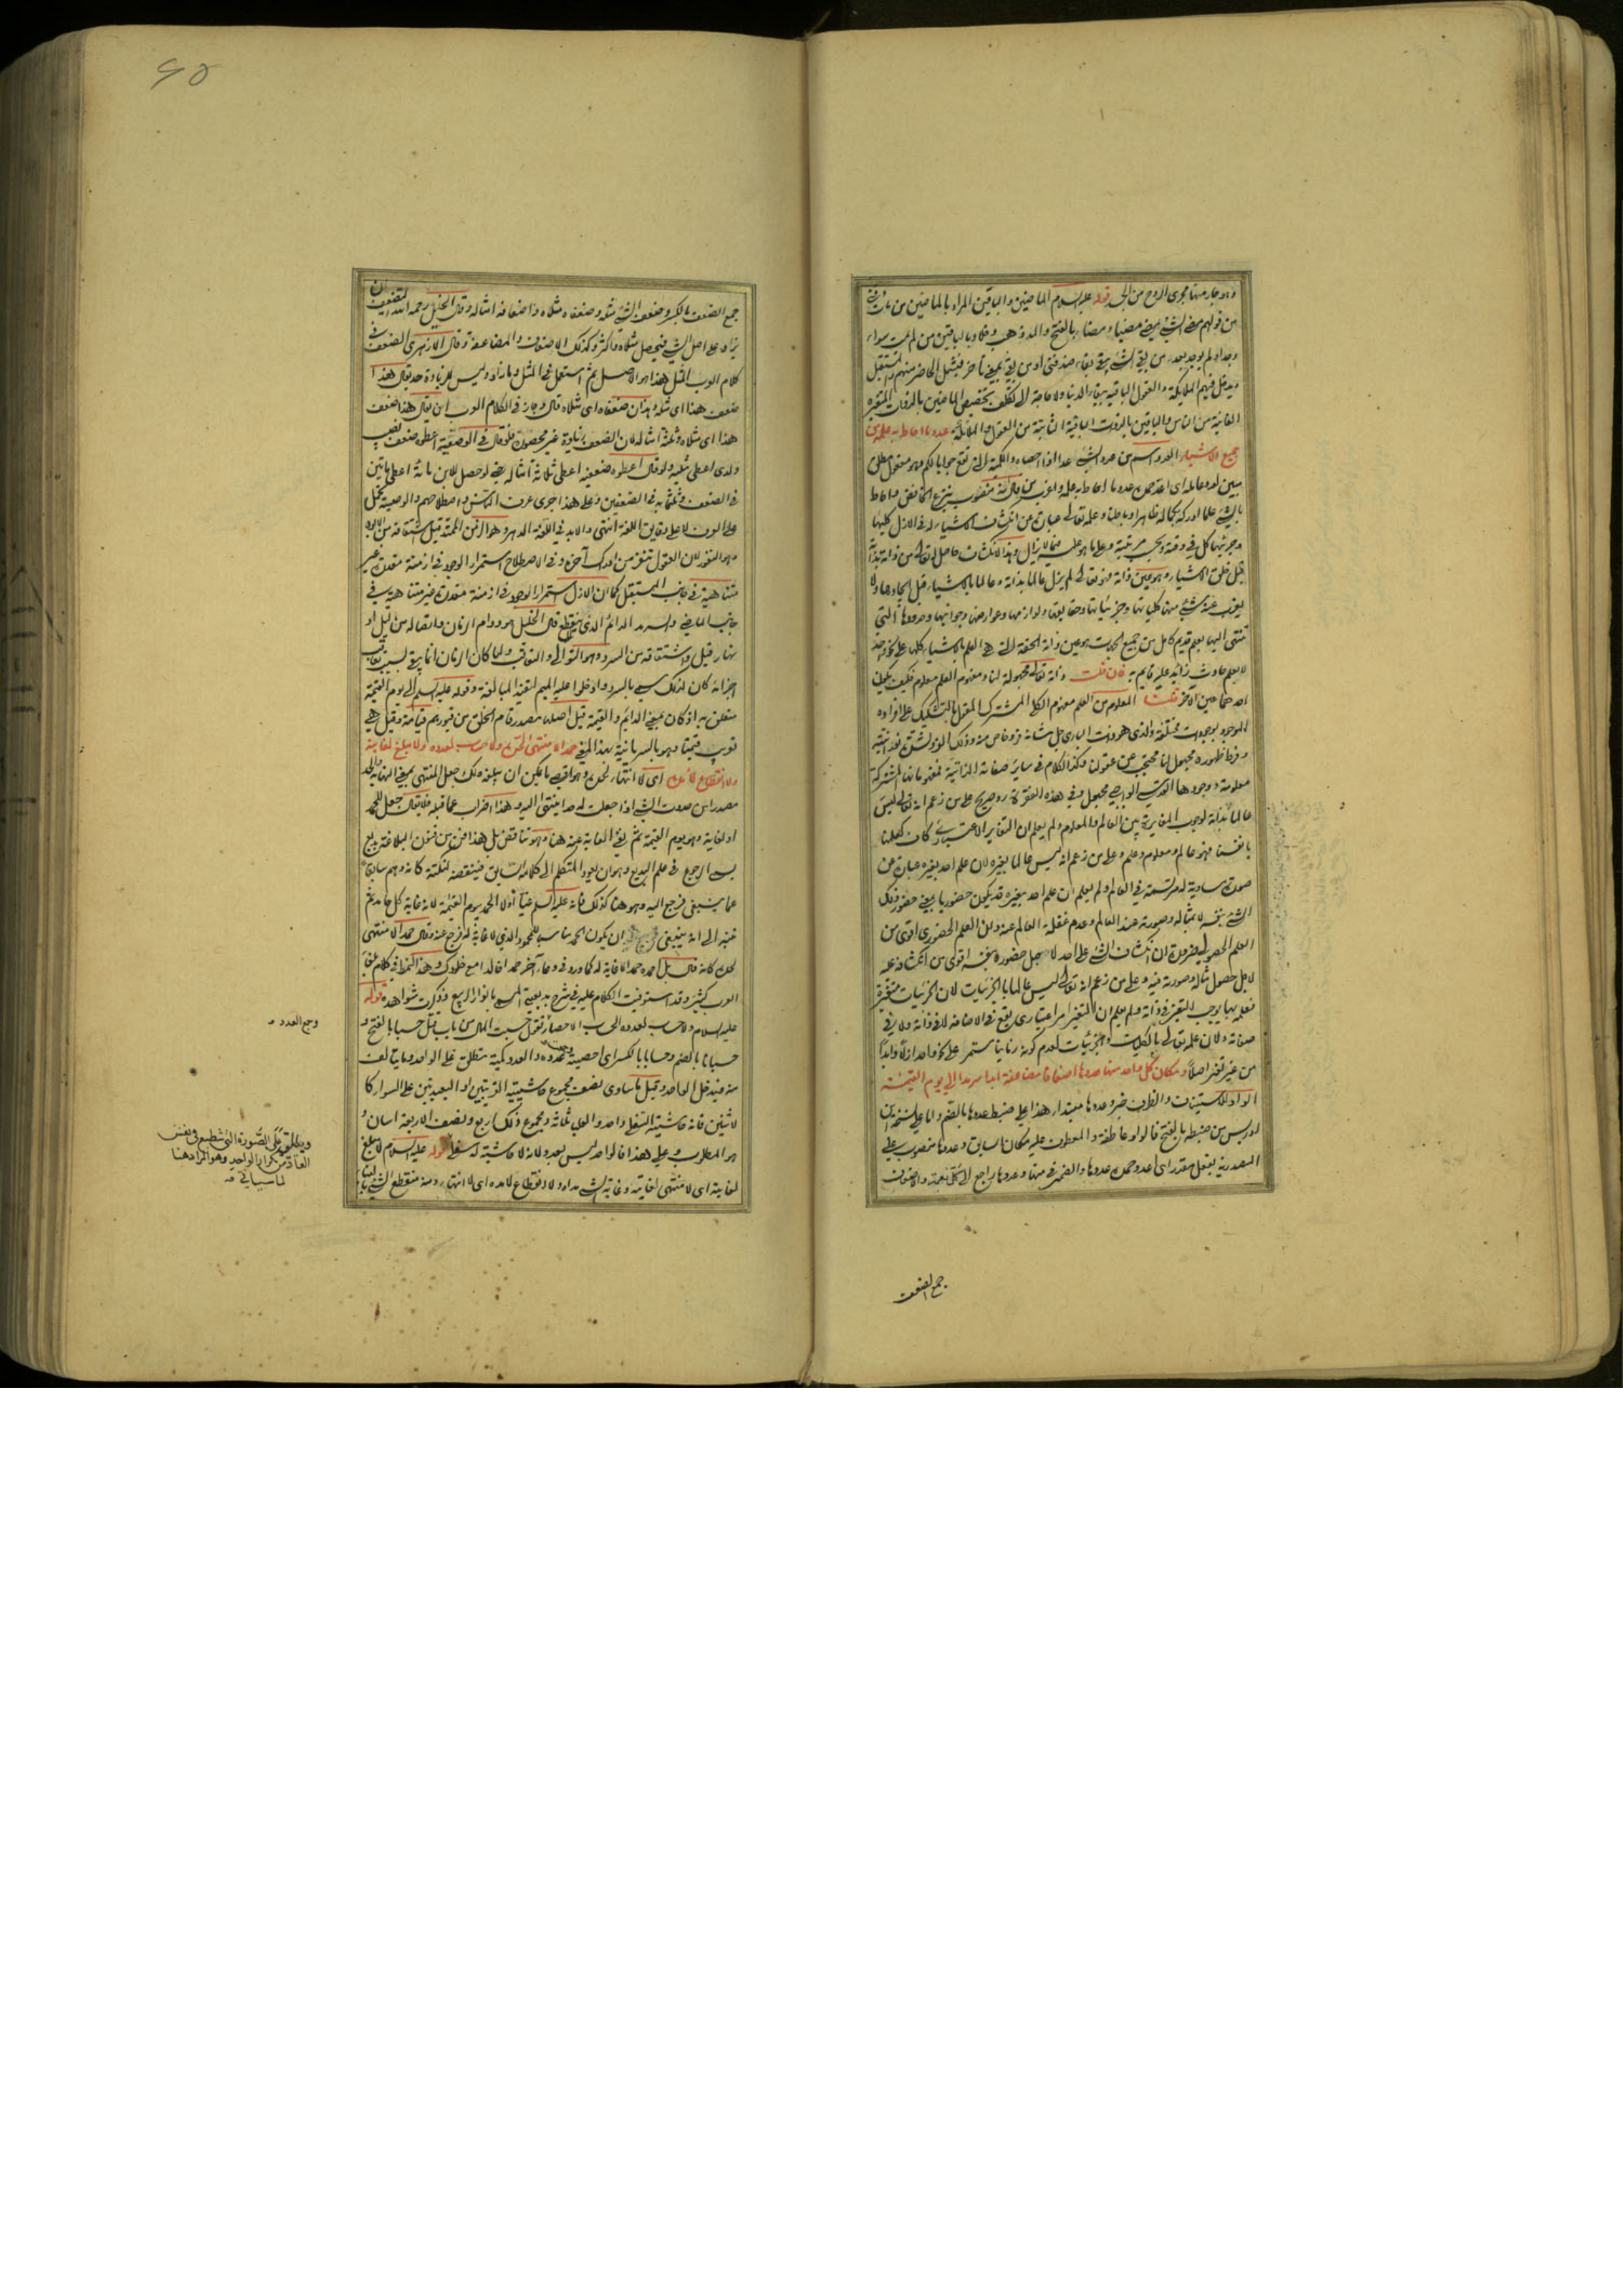 وهو جار منها مجرى الروح من الحى قوله عليه السلام الماضين والباقين المراد بالماضين من مات وفنى
من قولهم مضى الشئ يمضى مضيا ومضاء بالفتح والمد ذهب وخلا وبالباقين من لم يمت سواء
وجد او لم يوجد بعد من بقى الشئ يبقى بقاء ضد فنى او من بقى بمعنى تأخر فيشمل الحاضر منهم والمستقبل
ويدخل فيهم الملائكة والعقول الباقية ببقاء الدنيا ولا حاجة الى تكلف تخصيص الماضين بالذوات المتغيرة
الفانية من الناس والباقين بالذوات الباقية الثابتة من العقول والملائكة عدد ما احاط به علمه من
جميع الاشياء العدد اسم من عد الشئ عدا اذا احصاه والكمية التى تقع جوابا لكم فهو مفعول مطلق
مبين لعدد عامله اى اعد حمده عدد ما احاط به علمه منصوب بنزع الخافض واحاط
بالشئ علما ادركه بكماله ظاهرا وباطنا وعلمه تعالى عبارة عن انكشاف الاشياء له فى الازل كليها
وجزئيها كل فى وقته وبحسب مرتبته وعلى ما هو عليه فيما لا يزال وهذا الانكشاف حاصل له تعالى من ذاته بذاته
قبل خلق الاشياء وهو عين ذاته فهو تعالى لم يزل عالما بذاته وعالما بالاشياء قبل ايجادها ولا
يعزب عنه شئ منها كلياتها وجزئياتها وحقايقها ولوازمها وعوارضها وجواتها وحدودها التى
تنتهى اليها بعلم قديم كامل من جميع الجهات هو عين ذاته الحقة التى هى العلم بالاشياء كلها على نحو واحد
لا بعلم حادث زائد عليه قايم به فان قلت ذاته تعالى مجهولة لنا ومفهوم العلم معلوم فكيف يكون
احدهما عين الآخر قلت المعلوم من العلم مفهوم الكلى المشترك المقول بالتشكيك على افراده
الموجود بوجودات مختلفة والذى هو ذات البارى جل شانه فرد خاص منه وذلك الفرد لشدة نوريته
وفرط ظهوره مجهول لنا محتجب عن عقولنا وكذا الكلام فى ساير صفاته الذاتية فمفهوماتها المشتركة
معلومة ووجودها القدسى الواجبى مجهول وفى هذه الفقرة رد صريح على من زعم انه تعالى ليس
عالما بذاته لوجوب المغايرة بين العالم والمعلوم ولم يعلم ان التغاير الاعتبارى كاف كعلمنا
بانفسنا فهو عالم ومعلوم وعلم وعلى من زعم انه ليس عالما بغيره لان علم احد بغيره عبارة عن
صورة مساوية له مرتسمة فى العالم ولم يعلم ان علم احد بغيره قد يكون حضوريا بمعنى حضور ذلك
الشئ بنفسه لا بمثاله وصورته عند العالم وعدم غفلة العالم عنه وان العلم الحضورى اقوى من
العلم الحصولى ضرورة ان انكشاف الشئ على احد لاجل حضوره بنفسه اقوى من انكشافه عليه
لاجل حصول مثاله وصورته فيه وعلى من زعم انه تعالى ليس عالما بالجزئيات لان الجزئيات متغيرة
فعلمه بها يوجب التغير فى ذاته ولم يعلم ان التغير امر اعتبارى يقع فى الاضافة لا فى ذاته ولا فى
صفاته ولان علمه تعالى بالكليات والجزئيات لعدم كونه زمانيا مستمر على نحو واحد ازلا وابدا
من غير تغير اصلا ومكان كل واحد منها عددها اضعافا مضاعفة ابدا سرمدا الى يوم القيمة
الواو للاستيناف والظرف خبر وعددها مبتدا هذا على ضبط عددها بالضم واما على نسخة ابن
ادريس من ضبطه بالفتح فالواو عاطفة والمعطوف عليه مكان السابق وعددها منصوب على
المصدرية بفعل مقدر اى اعد حمده عددها والضمير فى منها وعددها راجع الى كل نعمة والاضعاف
جمع الضعف
جمع الضعف بالكسر وضعف الشئ مثله وضعفاه مثلاه واضعافه امثاله وقال الخليل رحمه الله التضعيف ان
يزاد على اصل الشئ فيحصل مثلاه واكثر وكذلك الاضعاف والمضاعفة وقال الازهرى الضعف فى
كلام العرب المثل هذا هو الاصل ثم استعمل فى المثل وما زاد وليس للزيادة حد يقال هذا
ضعف هذا اى مثله وهذان ضعفاه اى مثلاه قال وجاز فى الكلام العرب ان يقال هذا ضعف
هذا اى مثلاه وثلثة امثاله لان الضعف زيادة غير محصورة فلو قال فى الوصية اعطوه ضعف نصيب
ولدى اعطى مثليه ولو قال اعطوه ضعفيه اعطى ثلاثة امثاله حتى لو حصل للابن مائة اعطى مائتين
فى الضعف وثلثمائة فى الضعفين وعلى هذا جرى عرف الناس واصطلاحهم والوصية تحمل
على العرف لا على دقايق اللغة انتهى والابد فى اللغة الدهر وهو الزمن الممتد قيل اشتقاقه من الابود
وهو النفور لان العقول تنفر من ادراك آخره وفى الاصطلاح استمرار الوجود فى ازمنة مقدرة غير
متناهية فى جانب المستقبل كما ان الازل استمرار الوجود فى ازمنة مقدرة غير متناهية فى
جانب الماضى والسرمد الدائم الذى لا ينقطع قال الخليل هو دوام الزمان واتصاله من ليل او
نهار قيل واشتقاقه من السرد وهو التوالى والتعاقب ولما كان الزمان انما يبقى بسبب تعاقب
اجزائه كان لذلك يسمى بالسرد وادخلوا عليه الميم لتفيد المبالغة وقوله عليه السلم الى يوم القيمة
متعلق به اذ كان بمعنى الدائم والقيمة قيل اصلها مصدر قام الخلق من قبورهم قيامة وقيل هى
تعريب قيمثا وهو بالسريانية بهذا المعنى حمدا لا منتهى لحده ولا حساب لعدده ولا مبلغ لغايته
ولا انقطاع لامده اى لا انتهاء لحده وهو اقصى ما يمكن ان يبلغه ولك جعل المنتهى بمعنى النهاية والحد
مصدرا من حددت الشئ اذا جعلت له حدا ينتهى اليه وهذا اضراب عما قبله فلا يقال جعل للحمد
اولا غاية وهو يوم القيمة ثم نفى الغاية عنه هنا وهو تناقض بل هذا فن من فنون البلاغة بديع
يسمى الرجوع فى علم البديع وهو ان يعود المتكلم الى كلامه السابق فينقضه لنكتة كانه وهم سابقا
عما ينبغى فرجع اليه وهو هنا كذلك فانه عليه السلم غيا اولا الحمد بيوم القيمة لانه غاية كل حامد ثم
تنبه الى انه ينبغى ان يكون الحمد مناسبا للمحمود الذى لا غاية له فرجع عنه وقال حمدا لا منتهى
لحده كانه قال بل احمده حمدا لا غاية له كما ورد فى دعاء آخر حمدا خالدا مع خلودك وهذا النمط فى كلام بلغاء
العرب كثير وقد استوفيت الكلام عليه فى شرح بديعيتى المسمى بانوار الربيع وذكرت شواهده قوله
عليه السلام ولا حساب لعدده الحساب الاحصاء تقول حسبت المال من باب قتل حسبا بالفتح و
حسبانا بالضم وحسابا بالكسر اى احصيته عددا والعدد كمية متطلق على الواحد وما يتالف
منه فيدخل الواحد وقيل ما ساوى نصف مجموع حاشيتيه القريبتين او البعيدتين على السواء كا
لاثنين فانه حاشيته السفلى واحد والعليا ثلاثة ومجموع ذلك اربع ونصف الاربعة اثنان و
هو المطلوب وعلى هذا فالواحد ليس بعدد لانه لا حاشية له سفلى قوله عليه السلام لا مبلغ
لغايته اى لا منتهى لغايته وغاية الشئ مداه ولا انقطاع لامده اى لا انتهاء ومنه منقطع الشئ
وجمع العدد
ويطلق على الصورة التى تنطبع فى نفس
العاد من تكرار الواحد وهو المراد هنا
لما سيأتى